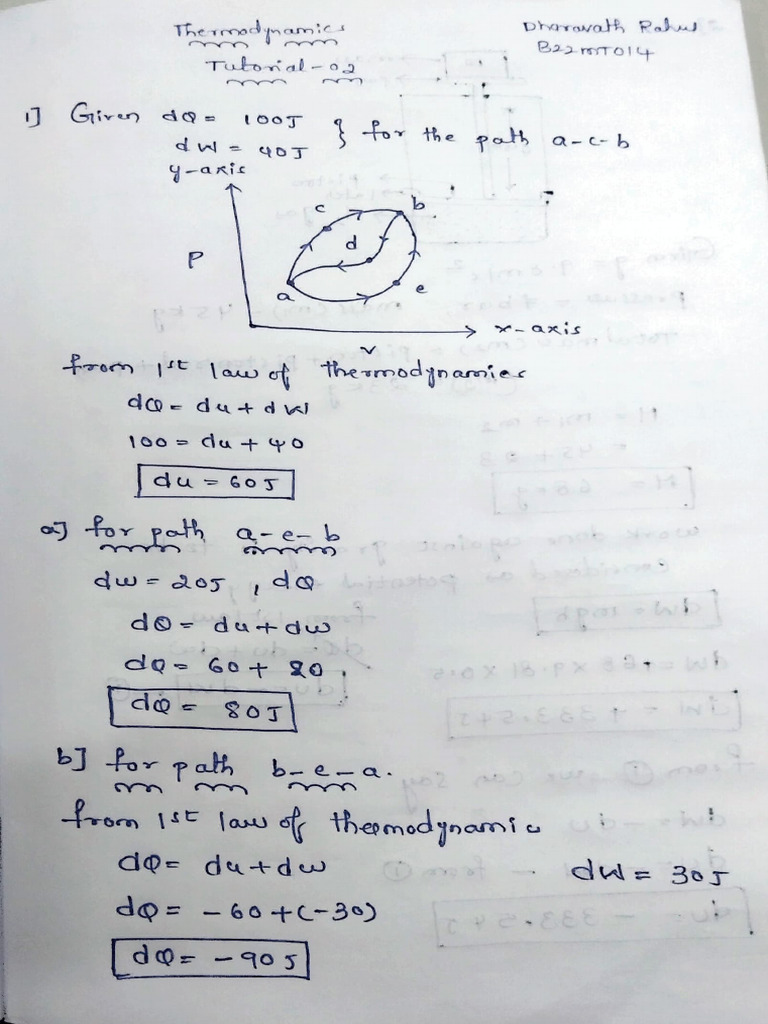 Thermodynamics
Dharavath Rahul
Tutorial-02
B22MT014
1] Given dQ = 100J
dW = 40J } for the path a-c-b
y-axis
c b
d
P
a e
x-axis
v
from 1st law of thermodynamics
dQ = du + dW
100 = du + 40
du = 60J
a] for path a-e-b
dw = 20J , dQ
dQ = du + dw
dQ = 60 + 20
dQ = 80J
b] for path b-e-a.
from 1st law of thermodynamic
dQ = du + dw dW = 30J
dQ = -60+(-30)
dQ = -90J